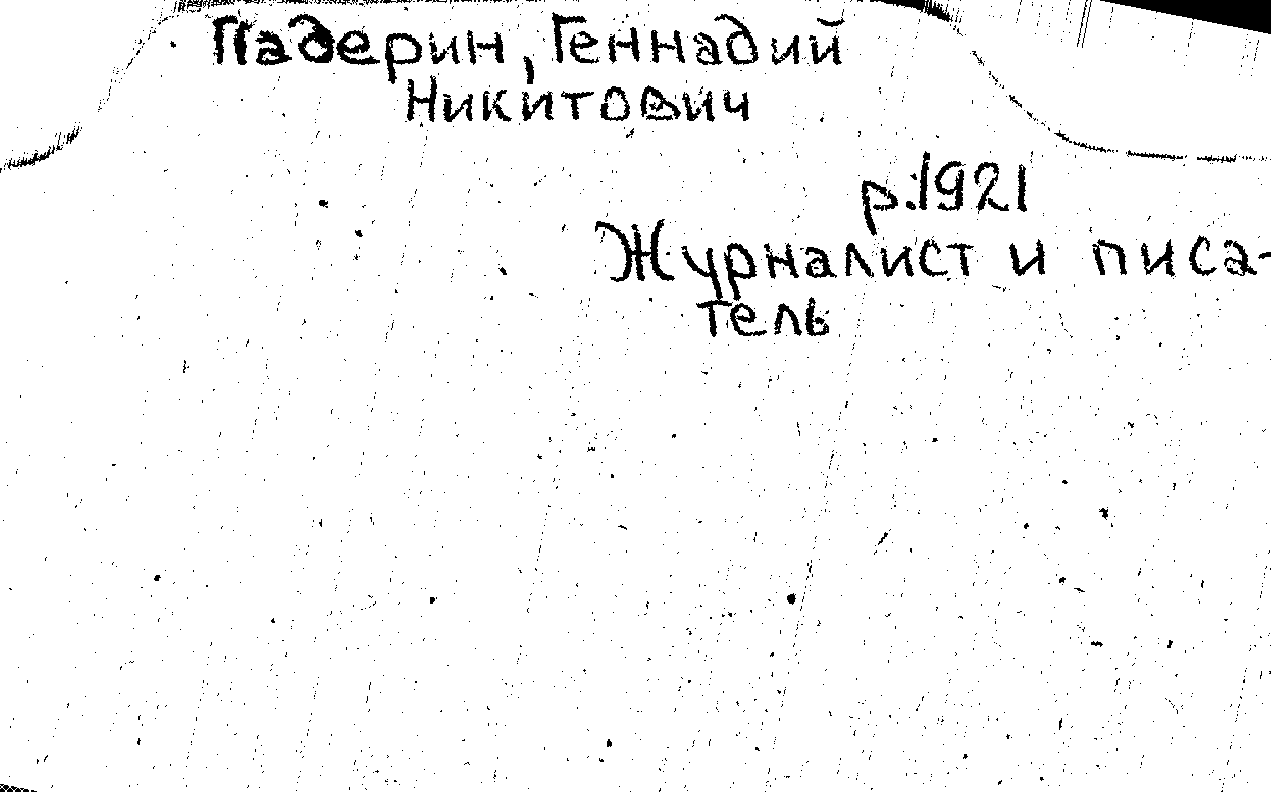 Падерин, Геннадий
Никитович
р.1921
Журналист и писа-
тель